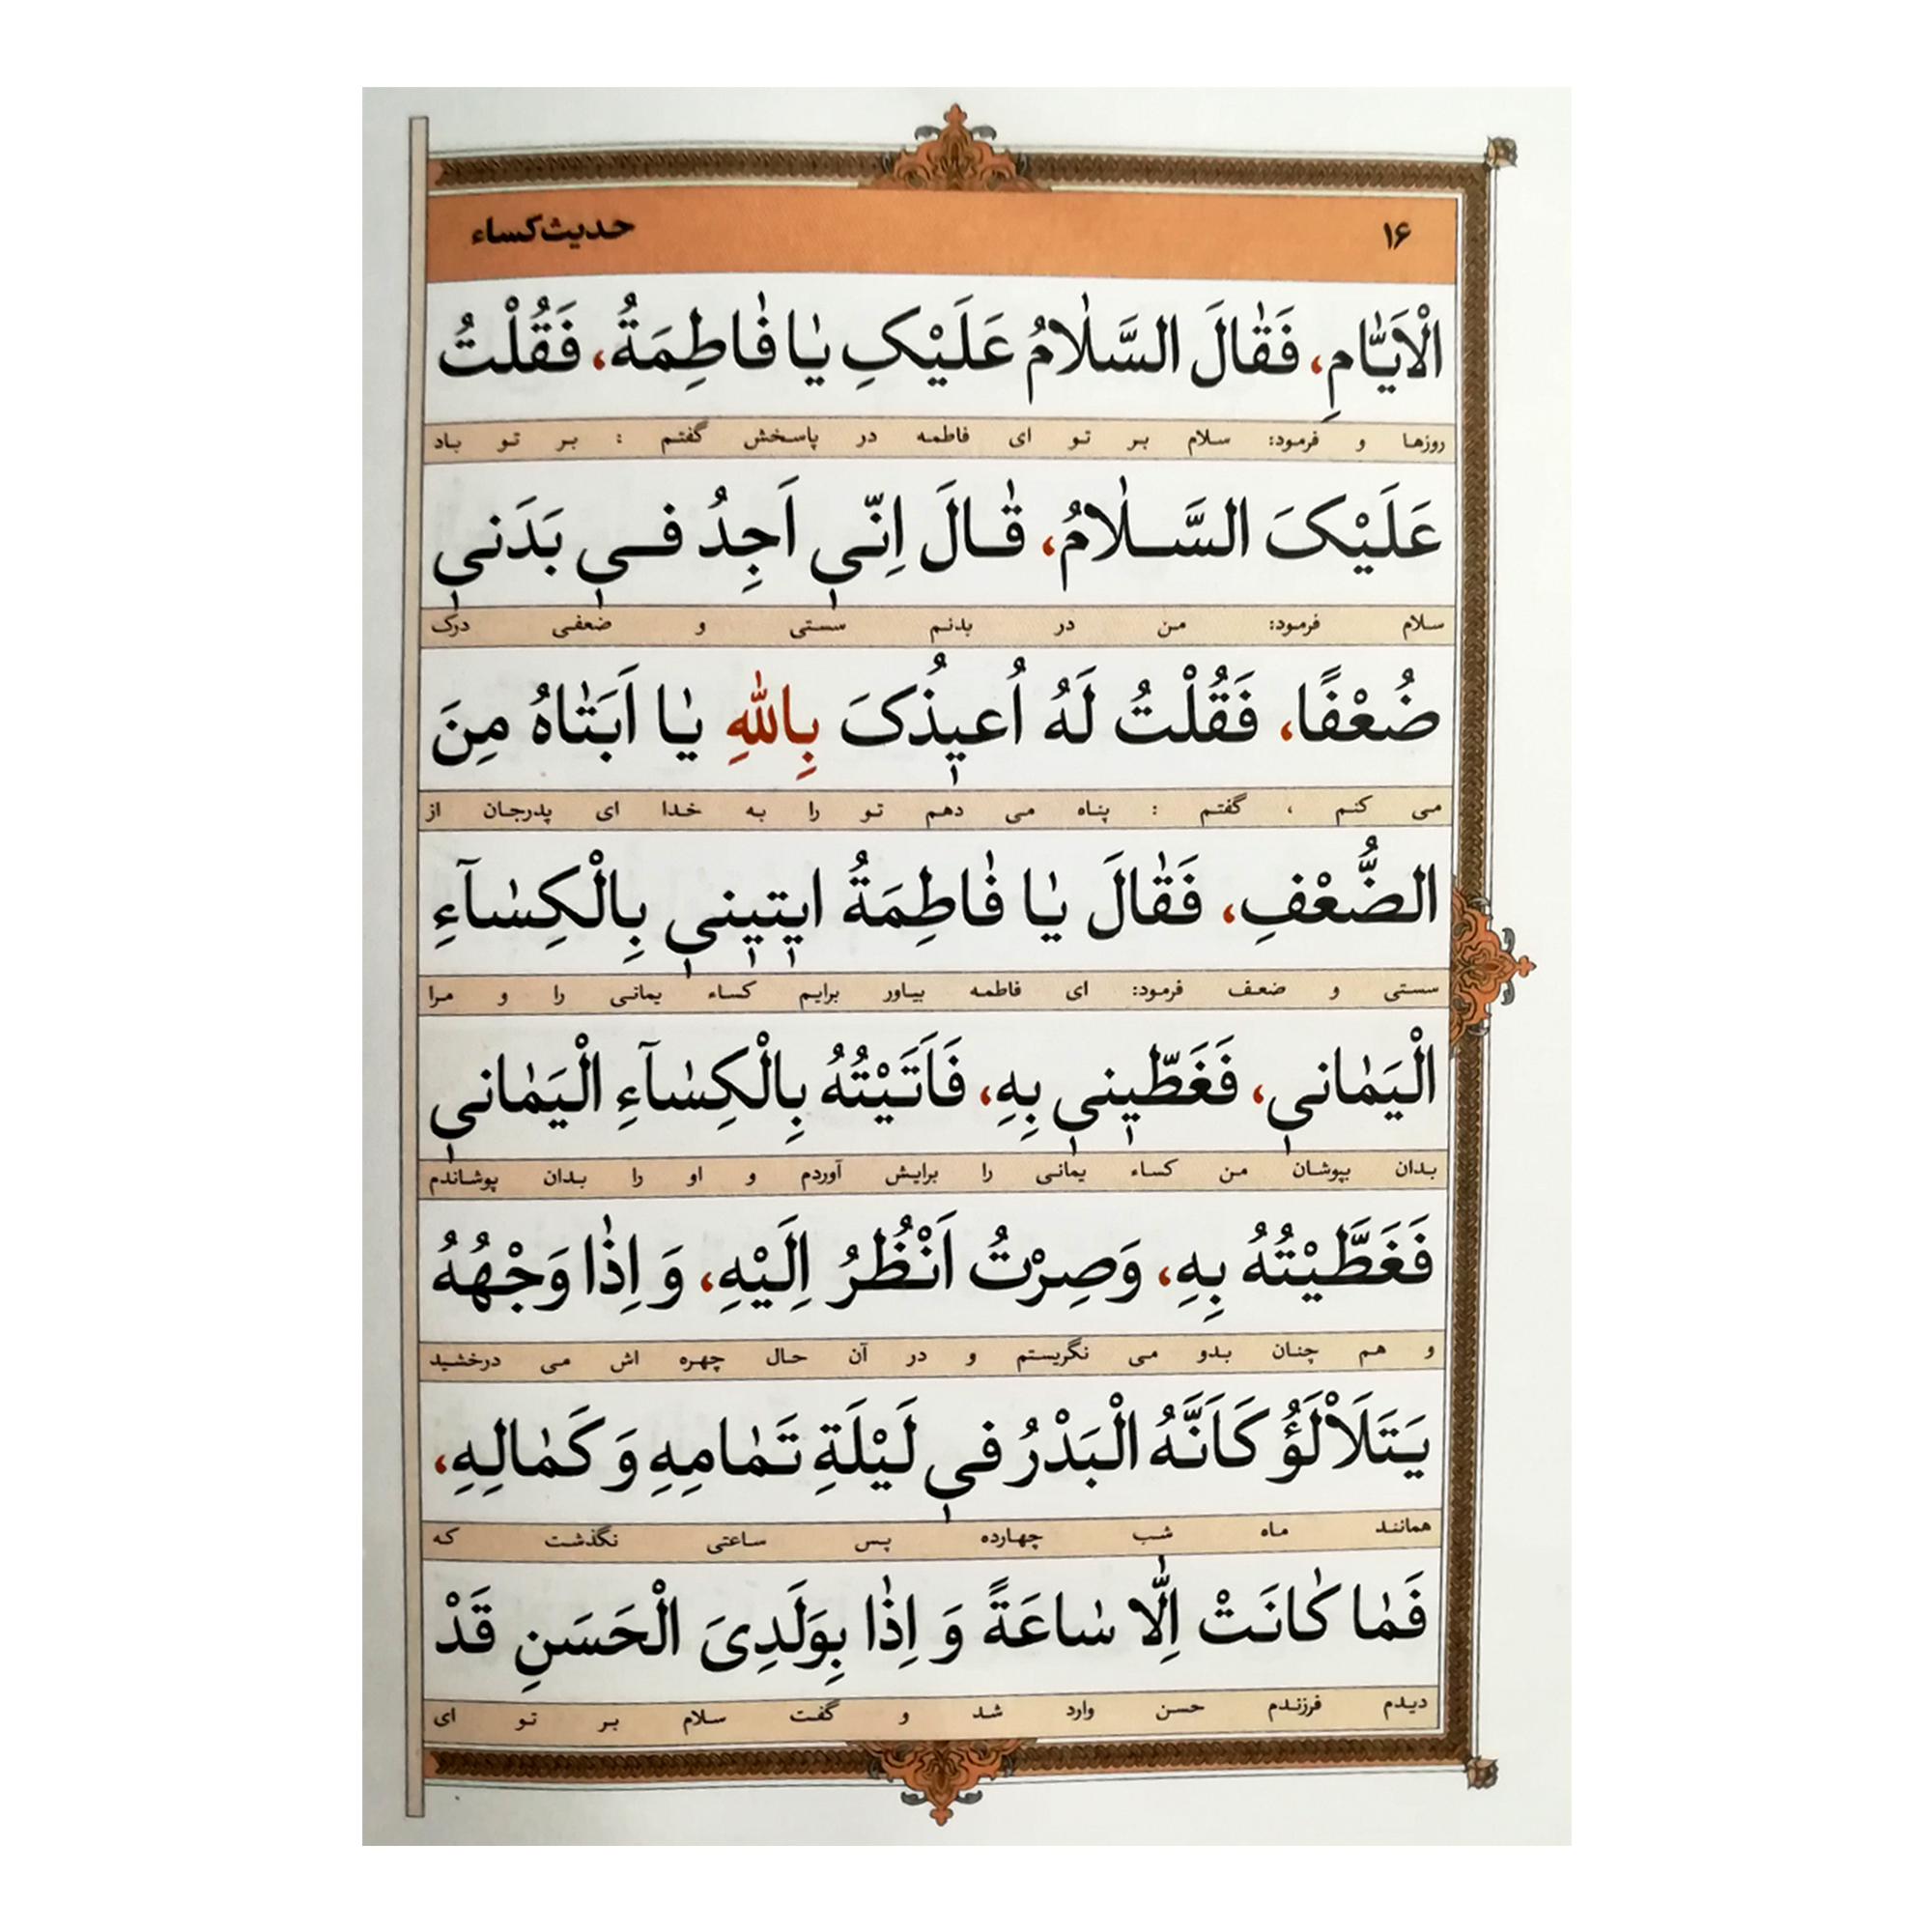 ۱۶ حدیث کساء
الْاَیّٰامِ، فَقٰالَ السَّلٰامُ عَلَیْکِ یٰا فٰاطِمَةُ، فَقُلْتُ
روزها و فرمود: سلام بر تو ای فاطمه در پاسخش گفتم : بر تو باد
عَلَیْکَ السَّلٰامُ، قٰالَ اِنّی اَجِدُ فی بَدَنی
سلام فرمود: من در بدنم سستی و ضعفی درک
ضُعْفًا، فَقُلْتُ لَهُ اُعیذُکَ بِاللّٰهِ یٰا اَبَتٰاهُ مِنَ
می کنم ، گفتم : پناه می دهم تو را به خدا ای پدرجان از
الضُّعْفِ، فَقٰالَ یٰا فٰاطِمَةُ ایتینی بِالْکِسٰآءِ
سستی و ضعف فرمود: ای فاطمه بیاور برایم کساء یمانی را و مرا
الْیَمٰانی، فَغَطّینی بِهِ، فَاَتَیْتُهُ بِالْکِسٰآءِ الْیَمٰانی
بدان بپوشان من کساء یمانی را برایش آوردم و او را بدان پوشاندم
فَغَطَّیْتُهُ بِهِ، وَصِرْتُ اَنْظُرُ اِلَیْهِ، وَ اِذٰا وَجْهُهُ
و هم چنان بدو می نگریستم و در آن حال چهره اش می درخشید
یَتَلَاْلَؤُ کَاَنَّهُ الْبَدْرُ فی لَیْلَةِ تَمٰامِهِ وَ کَمٰالِهِ،
همانند ماه شب چهارده پس ساعتی نگذشت که
فَمٰا کٰانَتْ اِلّٰا سٰاعَةً وَ اِذٰا بِوَلَدِیَ الْحَسَنِ قَدْ
دیدم فرزندم حسن وارد شد و گفت سلام بر تو ای